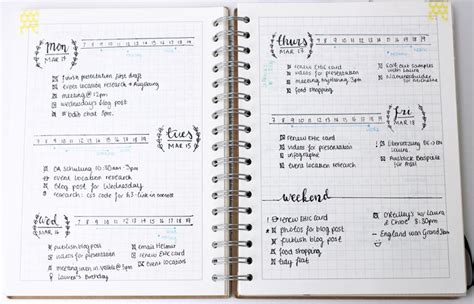 mon
MAR 14
7 8 9 10 11 12 13 14 15 16 17 18 19
finish presentation first draft
event location research + Augsburg
meeting @ 12pm
Wednesday's blog post
#bdib chat 8pm
tues
MAR 15
7 8 9 10 11 12 13 14 15 16 17 18 19
CA Schulung 10:30am - 3pm
event location research
blog post for Wednesday
research: css code for
wed
MAR 16
7 8 9 10 11 12 13 14 15 16 17 18 19
publish blog post
videos for presentation
meeting
Lauren's Birthday
email Helmut
renew EHIC card
event locations
thurs
MAR 17
7 8 9 10 11 12 13 14 15 16 17 18 19
renew EHIC card
videos for presentation
meeting 3pm
food shopping
Sort out samples
with Laura
fri
MAR 18
7 8 9 10 11 12 13 14 15 16 17 18 19
renew EHIC card
videos for presentation
infographic
event location research
weekend
renew EHIC card
photos for blog post
publish blog post
food shopping
tidy flat
O'Reilly's w/ Laura
& Chloe 8:30pm
England won Grand Slam